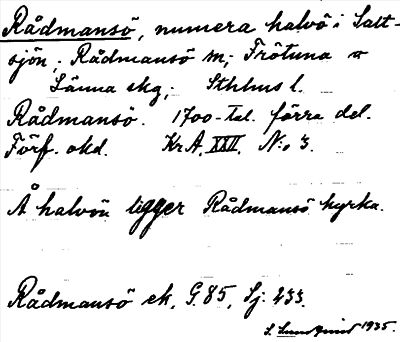 Rådmansö, numera halvö i Salt-
sjön; Rådmansö sn; Frötuna o
Länna skg; Sthlms l.
Rådmansö. 1700-tal. förra del.
Förf. okd. Kr.A. XXII. N:o 3.
Å halvön ligger Rådmansö kyrka.
Rådmansö ek, G. 85, Sj. 233.
1935.